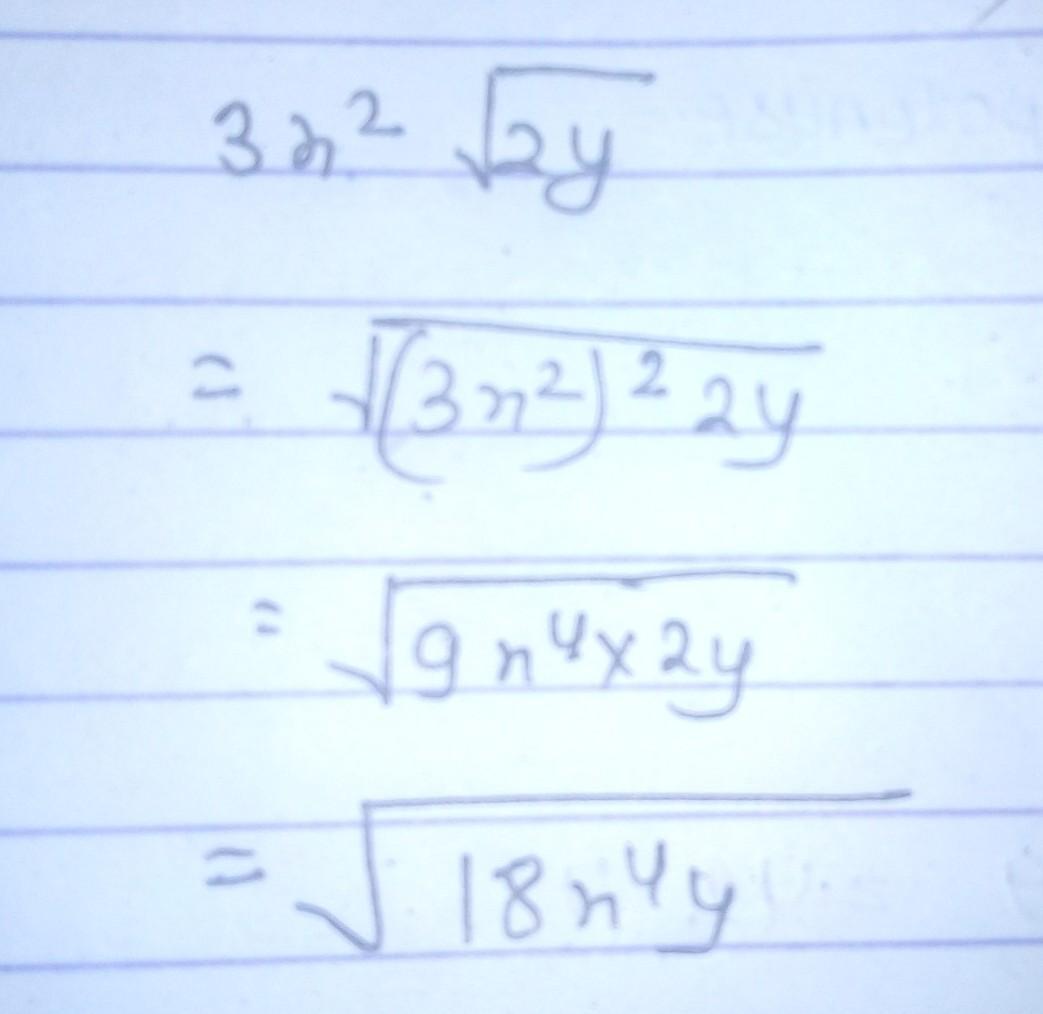 3x² √2y
= √(3x²)² 2y
= √9x⁴×2y
= √18x⁴y